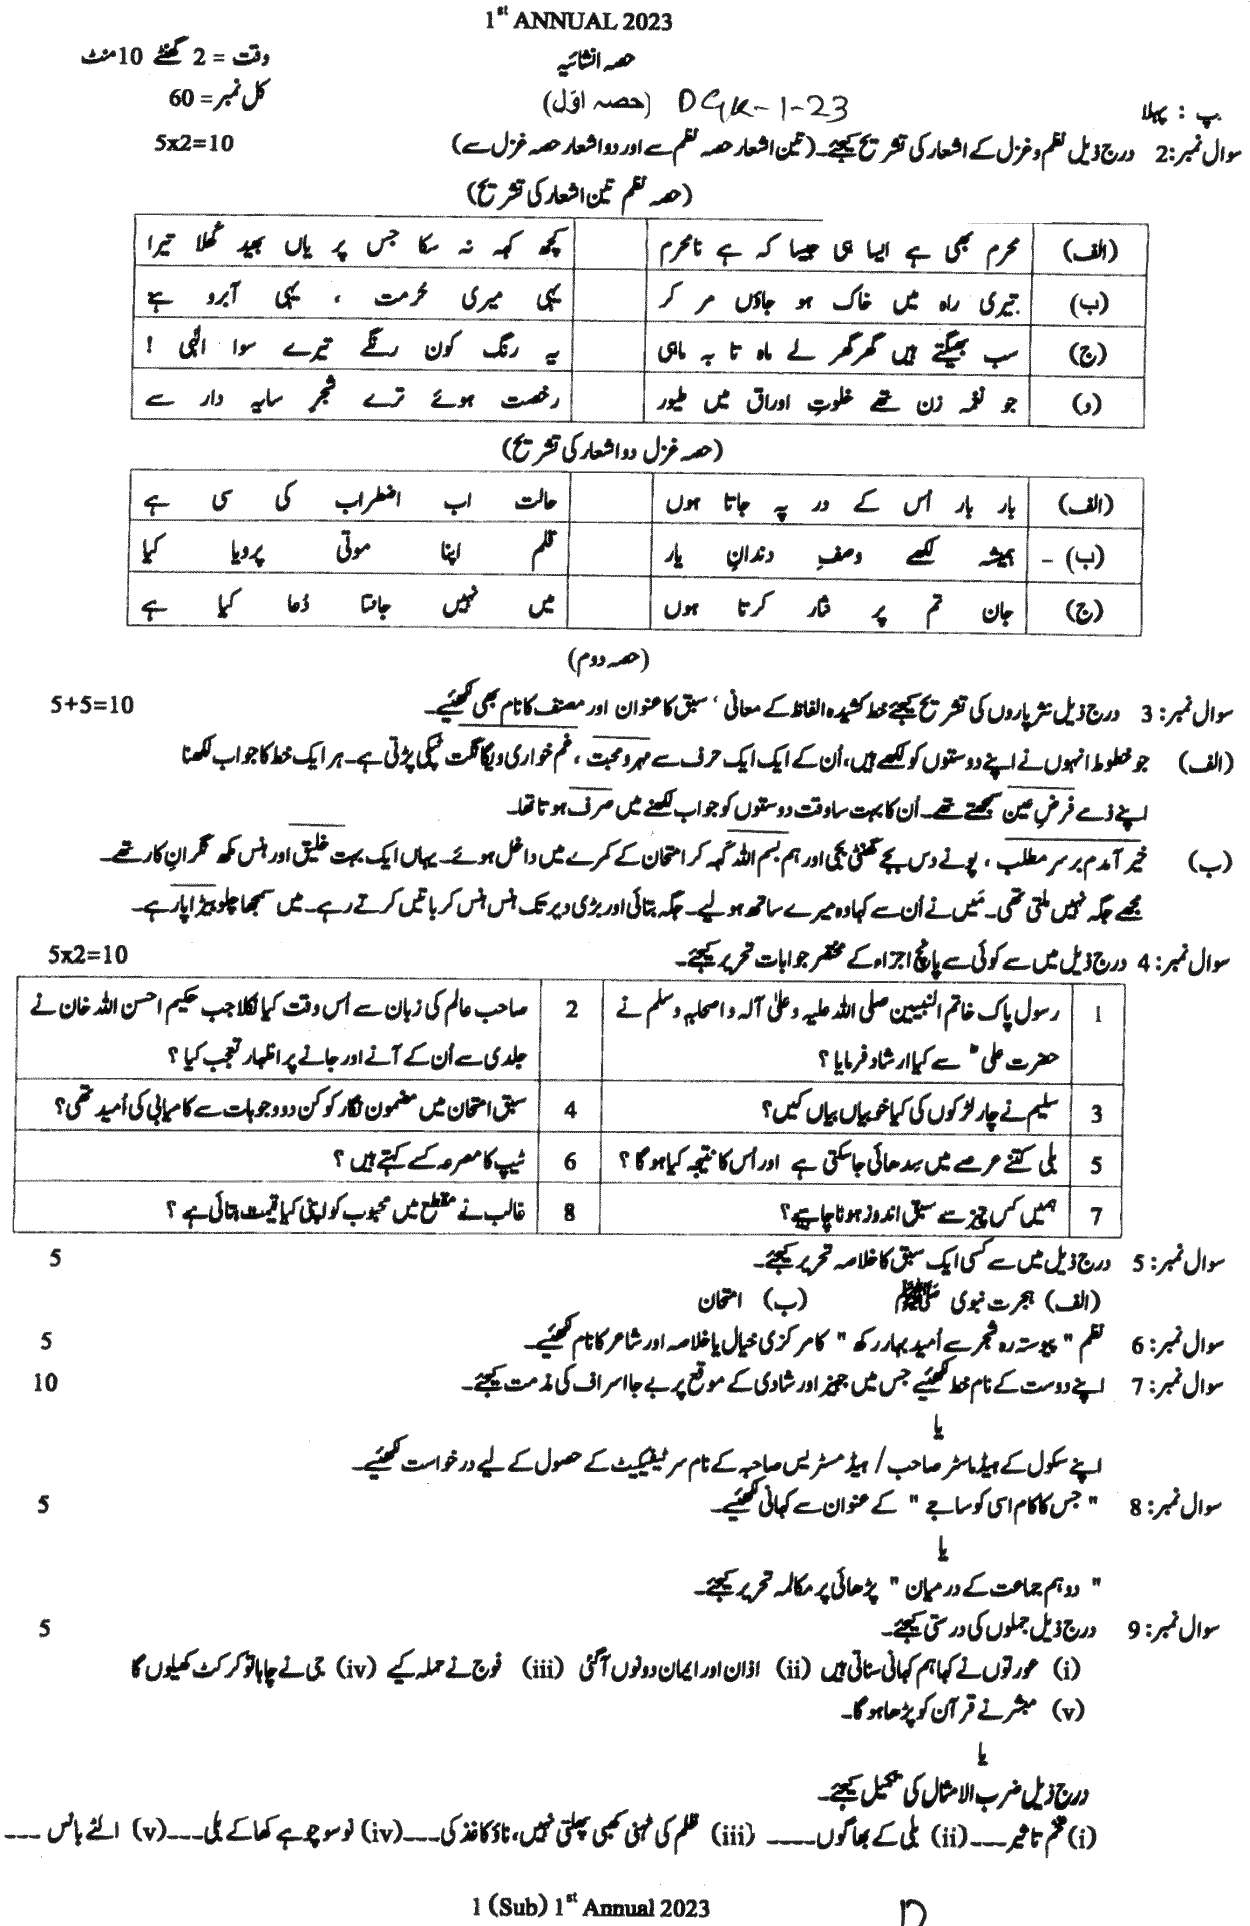 1st ANNUAL 2023
حصہ انشائیہ
وقت = 2 گھنٹے 10 منٹ
(حصہ اوّل) DGK-1-23
کل نمبر = 60
پ : پہلا
سوال نمبر: 2 درج ذیل نظم و غزل کے اشعار کی تشریح کیجئے۔ (تین اشعار حصہ نظم سے اور دو اشعار حصہ غزل سے) 5x2=10
(حصہ نظم تین اشعار کی تشریح)
(الف) محرم بھی ہے ایسا ہی جیسا کہ ہے نامحرم کچھ کہہ نہ سکا جس پر یاں بھید کھلا تیرا
(ب) تیری راہ میں خاک ہو جاؤں مر کر یہی میری حرمت ، یہی آبرو ہے
(ج) سب بھیگتے ہیں گھر گھر لے ماہ تا بہ ماہی یہ رنگ کون رنگے تیرے سوا الٰہی !
(د) جو نغمہ زن تھے خلوتِ اوراق میں طیور رخصت ہوئے ترے شجرِ سایہ دار سے
(حصہ غزل دو اشعار کی تشریح)
(الف) بار بار اُس کے در پہ جاتا ہوں حالت اب اضطراب کی سی ہے
(ب) - ہمیشہ لکھے وصفِ دندانِ یار قلم اپنا موتی پرویا کیا
(ج) جان تم پر نثار کرتا ہوں میں نہیں جانتا دُعا کیا ہے
(حصہ دوم)
سوال نمبر: 3 درج ذیل نثر پاروں کی تشریح کیجئے خط کشیدہ الفاظ کے معانی ، سبق کا عنوان اور مصنف کا نام بھی لکھئیے۔ 5+5=10
(الف) جو خطوط انہوں نے اپنے دوستوں کو لکھے ہیں، اُن کے ایک ایک حرف سے مہر و محبت ، غم خواری و یگانگت ٹپکی پڑتی ہے۔ ہر ایک خط کا جواب لکھنا
اپنے ذمے فرضِ عین سمجھتے تھے۔ اُن کا بہت سا وقت دوستوں کو جواب لکھنے میں صرف ہوتا تھا۔
(ب) خیر آمدم برسر مطلب ، پونے دس بجے گھنٹی بجی اور ہم بسم اللہ کہہ کر امتحان کے کمرے میں داخل ہوئے۔ یہاں ایک بہت خلیق اور ہنس مکھ نگرانِ کار تھے۔
مجھے جگہ نہیں ملتی تھی۔ مَیں نے اُن سے کہا وہ میرے ساتھ ہو لیے۔ جگہ بتائی اور بڑی دیر تک ہنس ہنس کر باتیں کرتے رہے۔ میں سمجھا چلو بیڑا پار ہے۔
سوال نمبر: 4 درج ذیل میں سے کوئی سے پانچ اجزاء کے مختصر جوابات تحریر کیجئے۔ 5x2=10
1 رسول پاک خاتم النبیین صلی اللہ علیہ وعلیٰ آلہ واصحابہ وسلم نے
حضرت علیؓ سے کیا ارشاد فرمایا ؟
2 صاحب عالم کی زبان سے اُس وقت کیا نکلا جب حکیم احسن اللہ خان نے
جلدی سے اُن کے آنے اور جانے پر اظہار تعجب کیا ؟
3 سلیم نے چار لڑکوں کی کیا خوبیاں بیاں کیں؟ 4 سبق امتحان میں مضمون نگار کو کن دو وجوہات سے کامیابی کی اُمید تھی؟
5 بلی کتنے عرصے میں سدھائی جا سکتی ہے اور اُس کا نتیجہ کیا ہو گا ؟ 6 ٹیپ کا مصرعہ کسے کہتے ہیں ؟
7 ہمیں کس چیز سے سبق اندوز ہونا چاہیے؟ 8 غالب نے مقطع میں محبوب کو اپنی کیا قیمت بتائی ہے ؟
سوال نمبر: 5 درج ذیل میں سے کسی ایک سبق کا خلاصہ تحریر کیجئے۔ 5
(الف) ہجرت نبوی ﷺ (ب) امتحان
سوال نمبر: 6 نظم " پیوستہ رہ شجر سے اُمید بہار رکھ " کا مرکزی خیال یا خلاصہ اور شاعر کا نام لکھئیے۔ 5
سوال نمبر: 7 اپنے دوست کے نام خط لکھئیے جس میں جہیز اور شادی کے موقع پر بے جا اسراف کی مذمت کیجئے۔ 10
یا
اپنے سکول کے ہیڈ ماسٹر صاحب / ہیڈ مسٹریس صاحبہ کے نام سرٹیفکیٹ کے حصول کے لیے درخواست لکھئیے۔
سوال نمبر: 8 " جس کا کام اسی کو ساجے " کے عنوان سے کہانی لکھئیے۔ 5
یا
" دو ہم جماعت کے درمیان " پڑھائی پر مکالمہ تحریر کیجئے۔
سوال نمبر: 9 درج ذیل جملوں کی درستی کیجئے۔ 5
(i) عورتوں نے کہا ہم کہانی سناتی ہیں (ii) اذان اور ایمان دونوں آ گئی (iii) فوج نے حملہ کیے (iv) جی نے چاہا تو کرکٹ کھیلوں گا
(v) مبشر نے قرآن کو پڑھا ہو گا۔
یا
درج ذیل ضرب الامثال کی تکمیل کیجئے۔
(i) تخم تاثیر---- (ii) بلی کے بھاگوں---- (iii) ظلم کی ٹہنی کبھی پھلتی نہیں، ناؤ کاغذ کی---- (iv) نو سو چوہے کھا کے بلی---- (v) الٹے بانس ----
1 (Sub) 1st Annual 2023